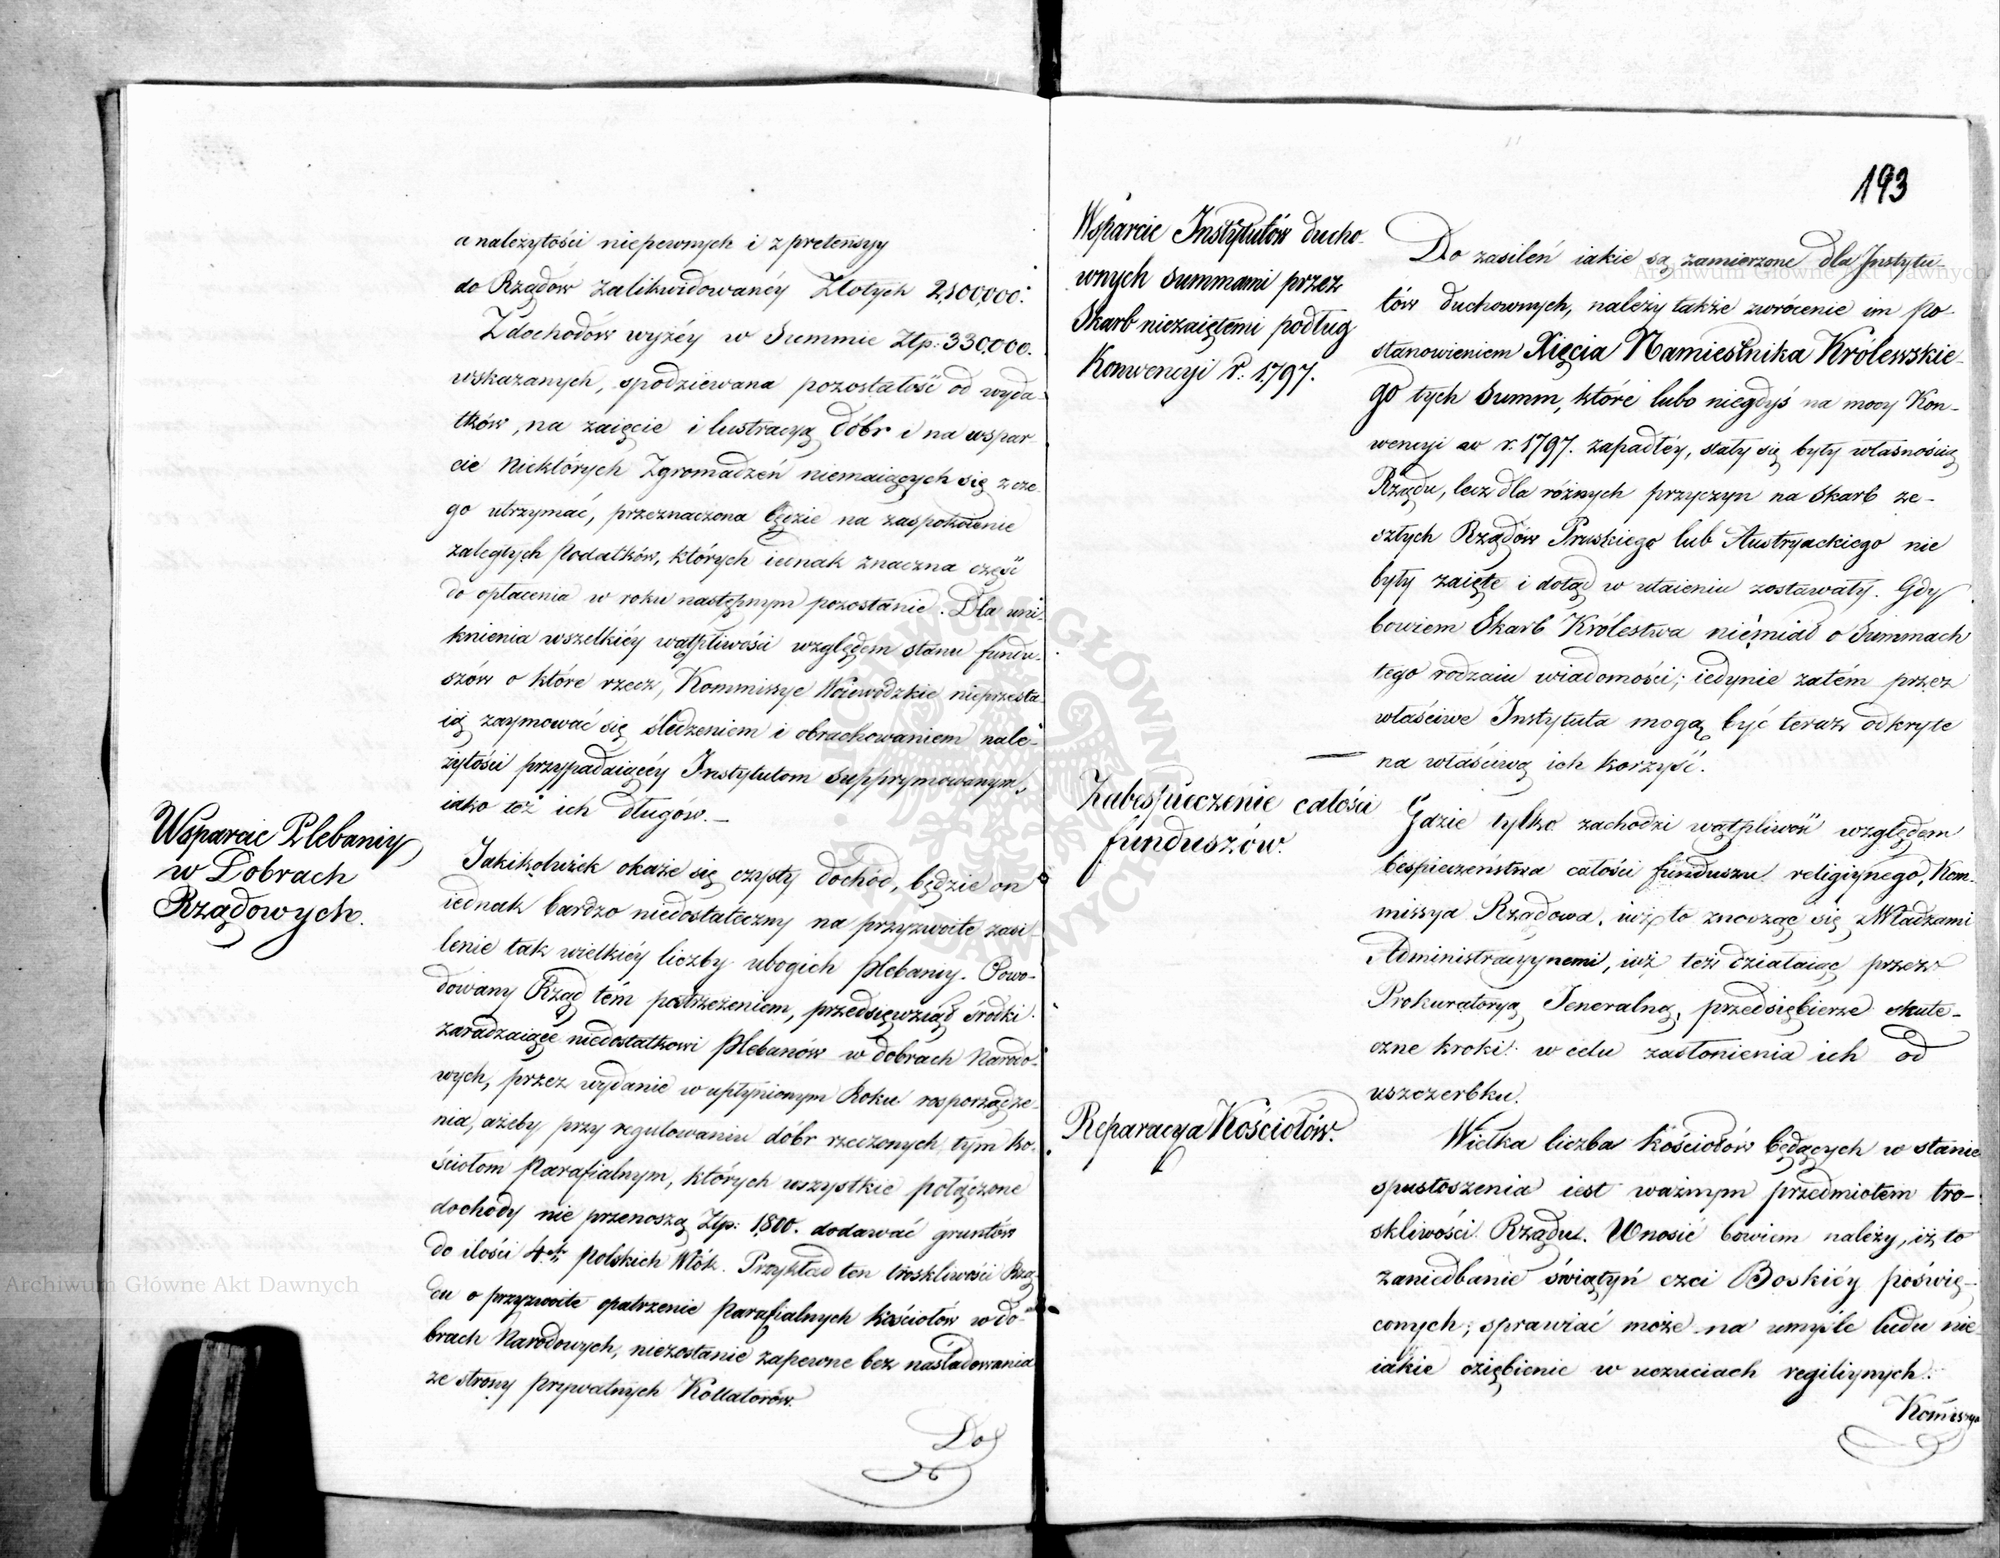 a należytości niepewnych i z pretensyy
do Rządów zalikwidowanéy Złotych 2,100,000.
Z dochodów wyżéy w Summie Złp: 330,000.
wskazanych, spodziewana pozostałość od wyda-
tków, na zaięcie i lustracyą dóbr i na wspar-
cie niektórych Zgromadzeń niemaiących się z cze-
go utrzymać, przeznaczona będzie na zaspokoienie
zaległych podatków, których iednak znaczna część
do opłacenia w roku następnym pozostanie. Dla uni-
knienia wszelkiéy wątpliwości względem stanu fundu-
szów o które rzecz, Kommissye Woiewódzkie nieprzesta-
ią zaymować się śledzeniem i obrachowaniem nale-
żytości przypadaiącéy Instytutom supprymowanym,
iako też ich długów.—
Wsparcie Plebaniy
w Dobrach
Rządowych.
Jakikolwiek okaże się czysty dochód, będzie on
iednak bardzo niedostateczny na przyzwoite zasi-
lenie tak wielkiéy liczby ubogich plebaniy. Powo-
dowany Rząd tém postrzeżeniem, przedsięwziął środki
zaradzaiące niedostatkowi plebanów w dobrach Narodo-
wych, przez wydanie w upłynionym Roku rosporządze-
nia, ażeby przy regulowaniu dóbr rzeczonych, tym ko-
ściołom parafialnym, których wszystkie połączone
dochody nie przenoszą Złp: 1800. dodawać gruntów
do ilości 4ch polskich Włók. Przykład ten troskliwości Rzą-
du o przyzwoite opatrzenie parafialnych kościołów w do-
brach Narodowych, niezostanie zapewne bez naśladowania
ze strony prywatnych Kollatorów.
Do
193
Wsparcie Instytutów ducho-
wnych summami przez
Skarb niezaiętemi podług
Konwencyi r. 1797.
Do zasileń iakie są zamierzone dla Instytu-
tów duchownych, należy także zwrócenie im po-
stanowieniem Xięcia Namiestnika Królewskie-
go tych summ, które lubo niegdyś na mocy Kon-
wencyi w r. 1797. zapadłéy, stały się były własnością
Rządu, lecz dla różnych przyczyn na Skarb ze-
szłych Rządów Pruskiego lub Austryackiego nie
były zaięte i dotąd w utaieniu zostawały. Gdy
bowiem Skarb Królestwa niemiał o Summach
tego rodzaiu wiadomości; iedynie zatém przez
właściwe Instytuta mogą być teraz odkryte
na właściwą ich korzyść.
Zabespieczenie całości
funduszów.
Gdzie tylko zachodzi wątpliwość względem
bespieczeństwa całości funduszu religiynego, Kom-
missya Rządowa, iuż to znosząc się z Władzami
Administracyynemi, iuż też działaiąc przez
Prokuratoryą Jeneralną, przedsiębierze skute-
czne kroki w celu zasłonienia ich od
uszczerbku.
Reparacya Kościołów.
Wielka liczba kościołów będących w stanie
spustoszenia iest ważnym przedmiotem tro-
skliwości Rządu. Wnosić bowiem należy, iż to
zaniedbanie świątyń czci Boskiéy poświę-
conych; sprawiać może na umyśle ludu nie-
iakie oziębienie w uczuciach regiliynych.
Kommissya
Archiwum Główne Akt Dawnych
Archiwum Główne Akt Dawnych
ARCHIWUM GŁÓWNE AKT DAWNYCH